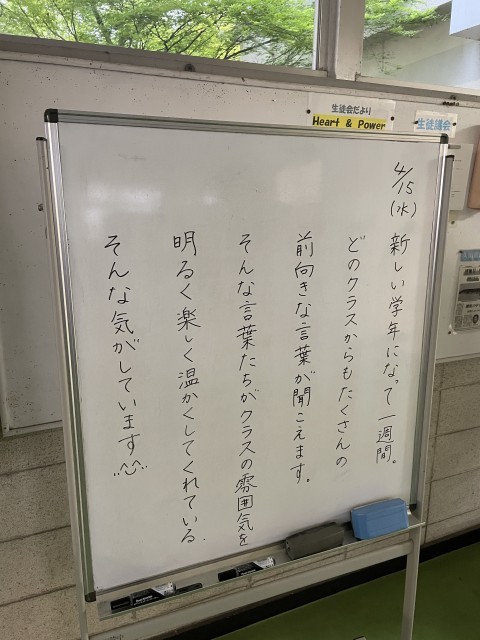 生徒会だより
Heart & Power
生徒議会
4/15(水)
新しい学年になって一週間。
どのクラスからもたくさんの
前向きな言葉が聞こえます。
そんな言葉たちがクラスの雰囲気を
明るく楽しく温かくしてくれている.
そんな気がしています^^